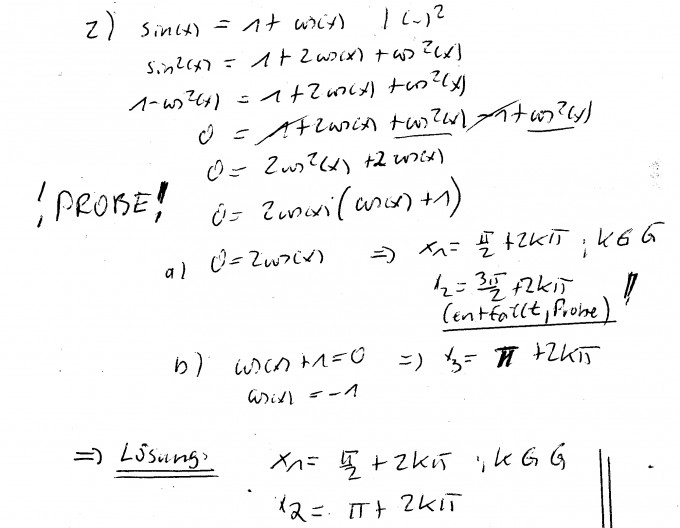 2) sin(x) = 1 + cos(x) | (..)²
sin²(x) = 1 + 2cos(x) + cos²(x)
1-cos²(x) = 1 + 2cos(x) + cos²(x)
0 = 1 + 2cos(x) + cos²(x) - 1 + cos²(x)
0 = 2cos²(x) + 2cos(x)
! PROBE!
0 = 2cos(x) (cos(x) + 1)
a) 0 = 2cos(x) => x₁ = π/2 + 2kπ ; k ∈ G
x₂ = 3π/2 + 2kπ
(entfällt, Probe) !
b) cos(x) + 1 = 0 => x₃ = π + 2kπ
cos(x) = -1
=> Lösung: x₁ = π/2 + 2kπ ; k ∈ G
x₂ = π + 2kπ